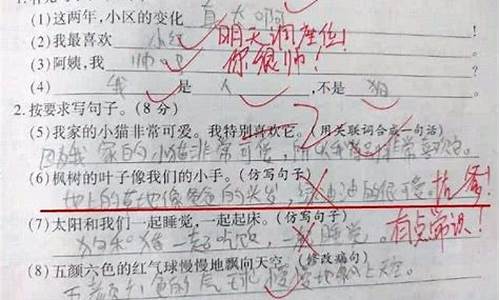 (1)这两年,小区的变化 真大啊
(2)我最喜欢 小红 明天调座位!
(3)阿姨,我 帅吧 你很帅!
(4) 我 是 人 ,不是 狗
2. 按要求写句子。(8 分)
(5)我家的小猫非常可爱。我特别喜欢它。(用关联词合成一句话)
因为我家的小猫非常可爱,所以我非常喜欢它。
(6)枫树的叶子像我们的小手。(仿写句子)
地上的草地像爸爸的头发,绿油油的很可爱。
(7)太阳和我们一起睡觉,一起起床。(仿写句子) 有点常识!
狗和猪一起吃饭,一起睡觉。
(8)五颜六色的红气球慢慢地飘向天空。(修改病句)
五颜六色的气球慢慢地飘上天空。